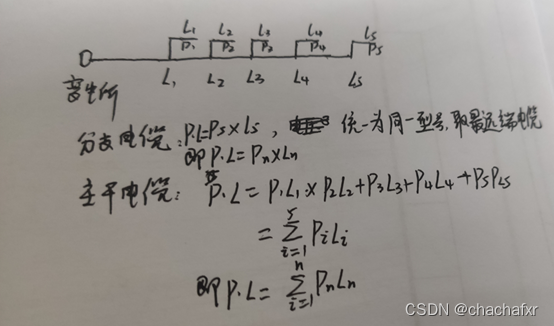 L₁ L₂ L₃ L₄ L₅
P₁ P₂ P₃ P₄ P₅
L₁ L₂ L3 L4 L5
变电所
分支电缆: P.L=P5×L5, 统一为同一型号,取最远端电缆
即P.L=Pn×Ln
主干电缆: P.L = P₁L₁×P₂L₂+P₃L₃+P4L4+P5PL5
= ∑ PiLi
i=1 5
即P.L= ∑ PnLn
i=1 n
CSDN @chachafxr